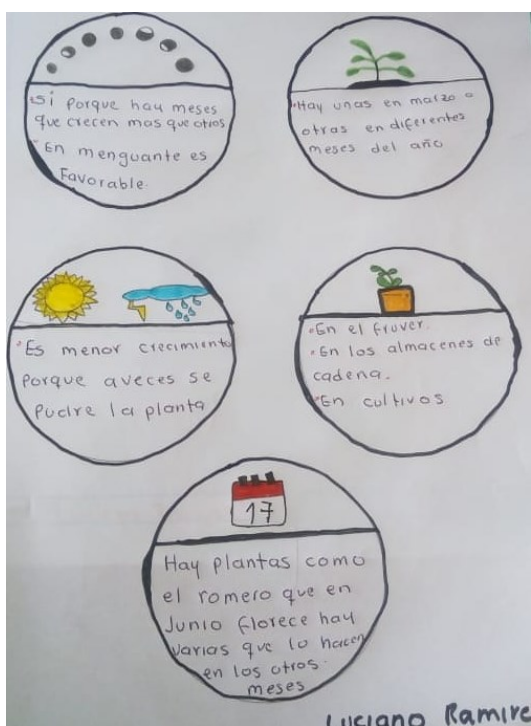 Si porque hay meses
que crecen mas que otros
En menguante es
Favorable.
Hay unas en marzo o
otras en diferentes
meses del año
Es menor crecimiento
porque aveces se
pudre la planta
En el fruver.
En los almacenes de
cadena.
En cultivos
17
Hay plantas como
el romero que en
Junio florece hay
varias que lo hacen
en los otros.
meses
Luciano Ramire